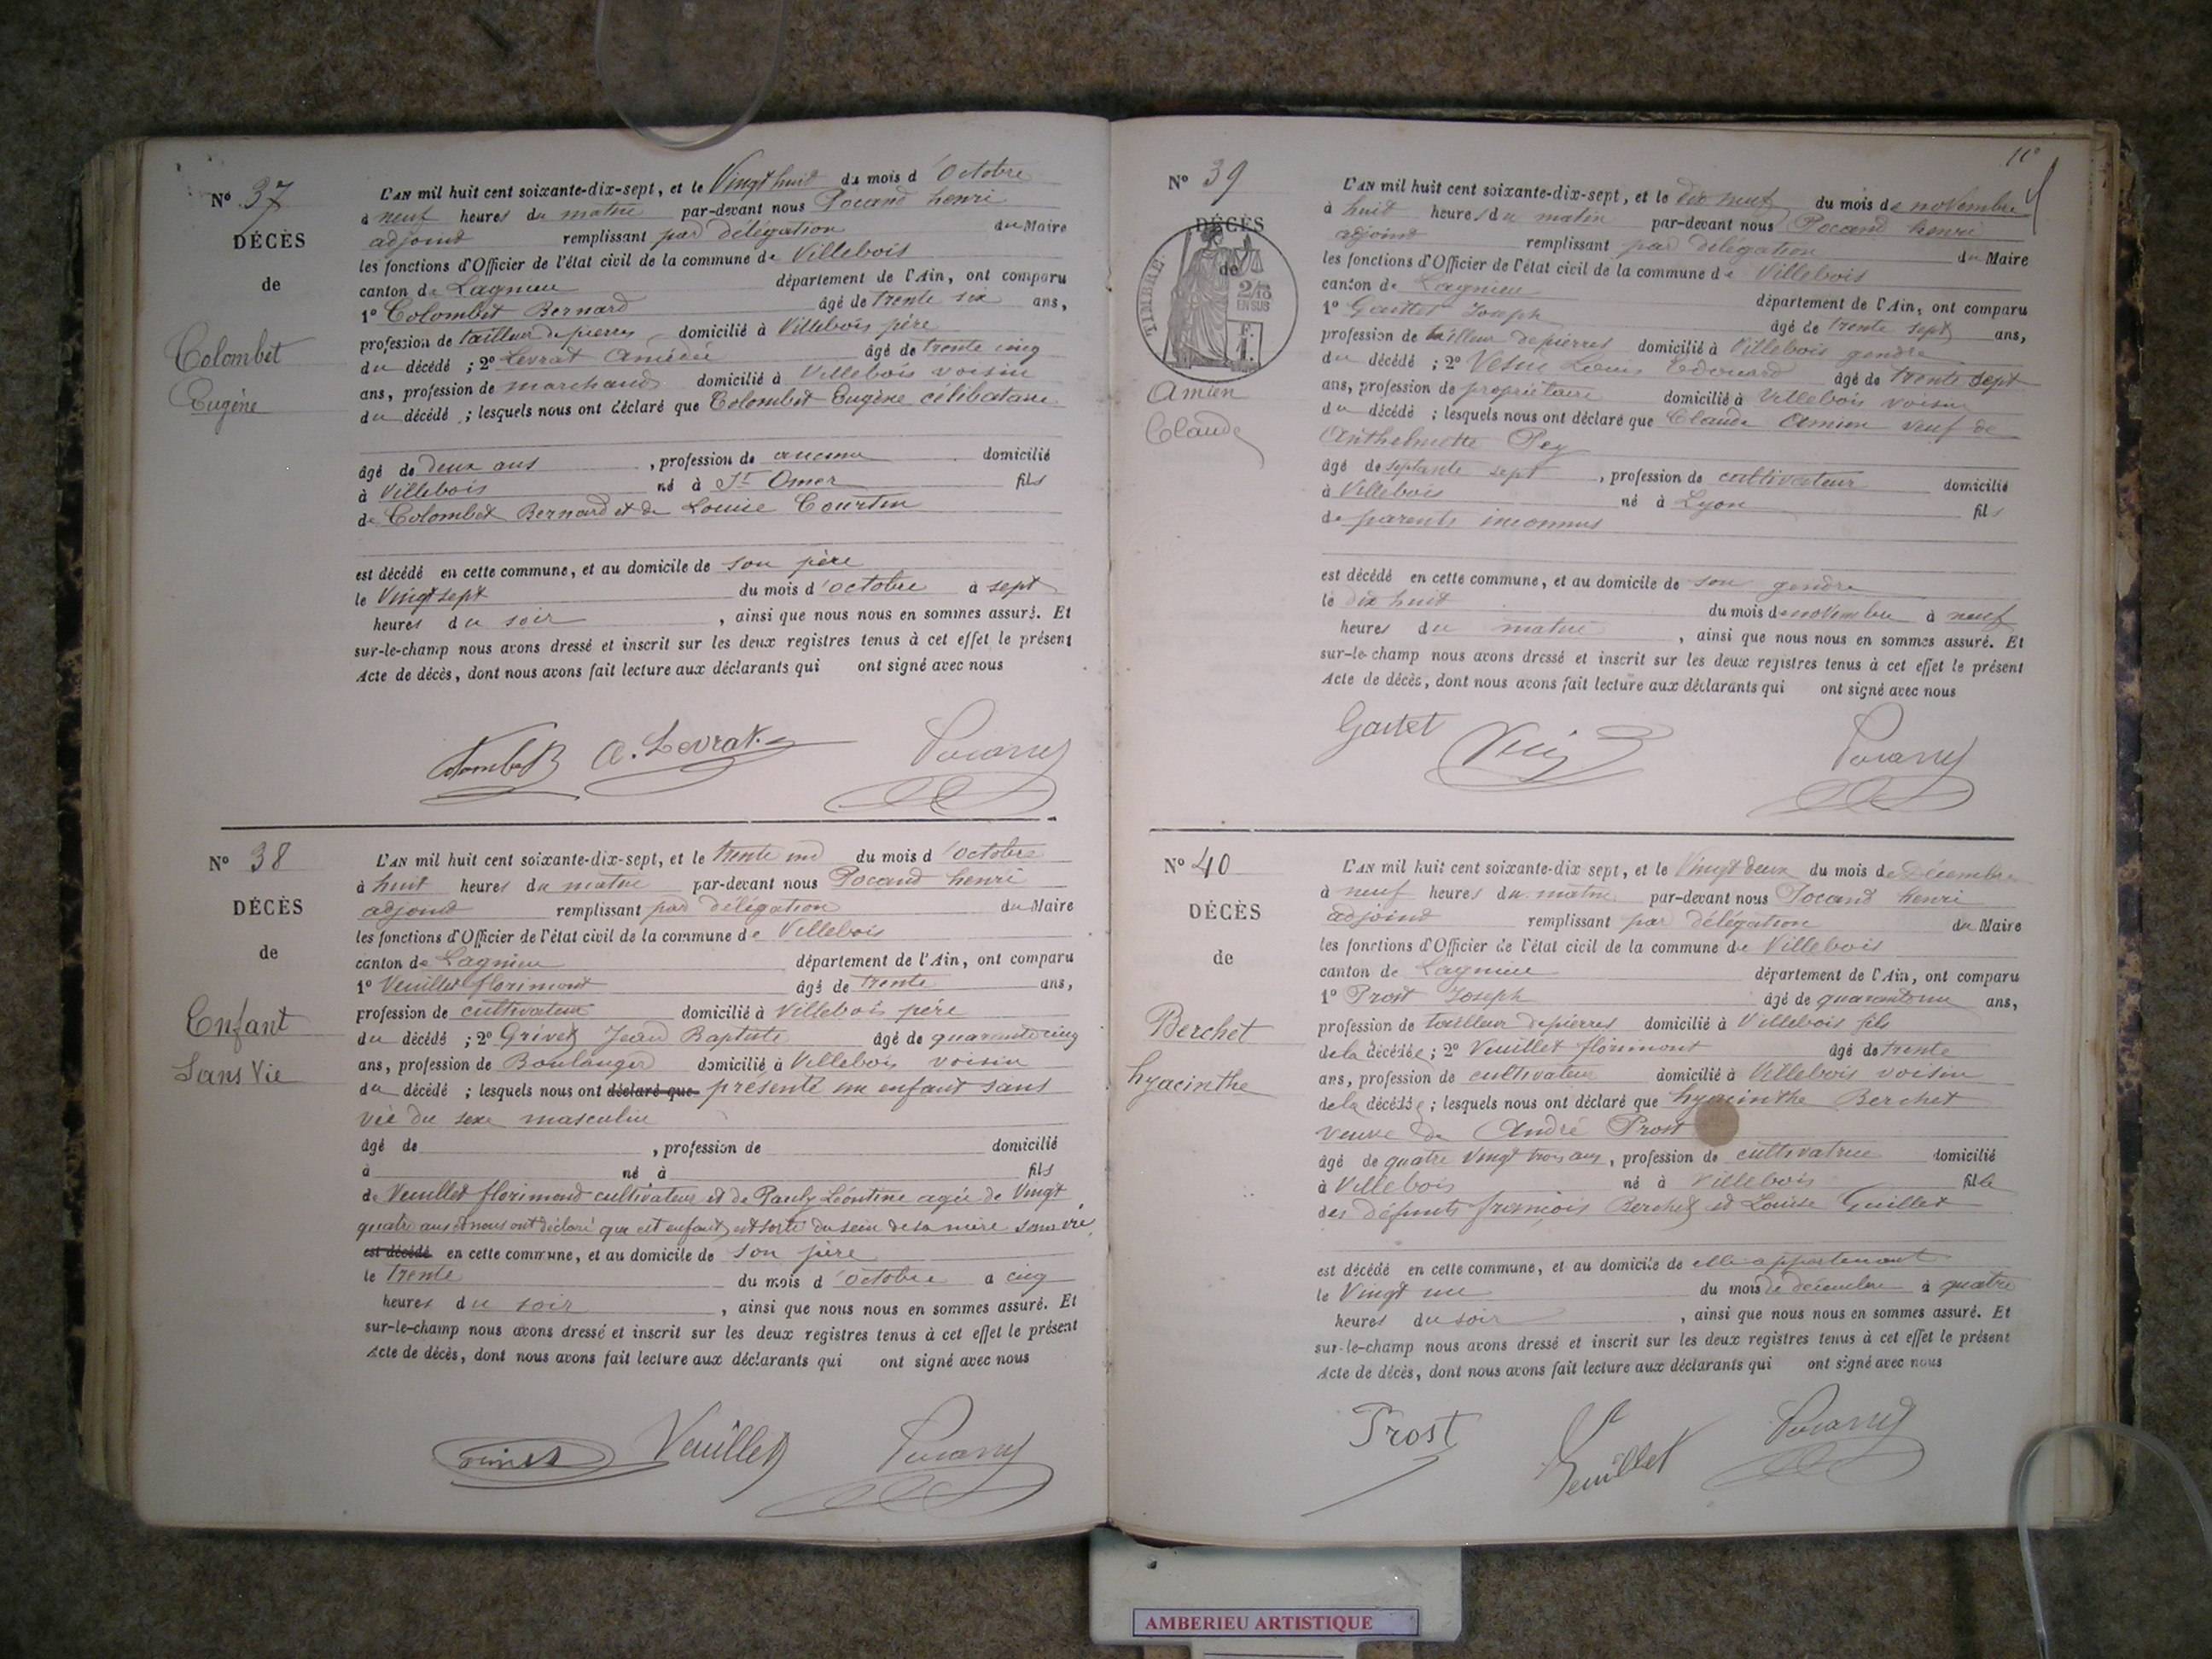 N° 37
DÉCÈS
de
Colombet
Eugène
L'AN mil huit cent soixante-dix-sept, et le Vingt huit du mois d'Octobre
à neuf heures du matin par-devant nous Pocand henri
adjoint remplissant par délégation du Maire
les fonctions d'Officier de l'état civil de la commune de Villebois
canton de Lagnieu département de l'Ain, ont comparu
1° Colombet Bernard âgé de trente six ans,
profession de tailleur de pierres domicilié à Villebois père
du décédé ; 2° Levrat Amédée âgé de trente cinq
ans, profession de marchand domicilié à Villebois voisin
du décédé ; lesquels nous ont déclaré que Colombet Eugène célibataire
âgé de deux ans , profession de aucune domicilié
à Villebois né à St Omer fils
de Colombet Bernard et de Louise Courtin
est décédé en cette commune, et au domicile de son père
le Vingt sept du mois d'octobre à sept
heures du soir , ainsi que nous nous en sommes assuré. Et
sur-le-champ nous avons dressé et inscrit sur les deux registres tenus à cet effet le présent
Acte de décès, dont nous avons fait lecture aux déclarants qui ont signé avec nous
Colombet A. Levrat Pocand
N° 38
DÉCÈS
de
Enfant
Sans Vie
L'AN mil huit cent soixante-dix-sept, et le trente un du mois d'Octobre
à huit heures du matin par-devant nous Pocand henri
adjoint remplissant par délégation du Maire
les fonctions d'Officier de l'état civil de la commune de Villebois
canton de Lagnieu département de l'Ain, ont comparu
1° Veuillet florimont âgé de trente ans,
profession de cultivateur domicilié à Villebois père
du décédé ; 2° Grivet Jean Baptiste âgé de quarante cinq
ans, profession de Boulanger domicilié à Villebois voisin
du décédé ; lesquels nous ont déclaré que présenté un enfant sans
vie du sexe masculin
âgé de , profession de domicilié
à né à fils
de Veuillet florimond cultivateur et de Pauly Léontine agée de Vingt
quatre ans et nous ont déclaré que cet enfant est sorti du sein de sa mère sans vie
est décédé en cette commune, et au domicile de son père
le trente du mois d'octobre à cinq
heures du soir , ainsi que nous nous en sommes assuré. Et
sur-le-champ nous avons dressé et inscrit sur les deux registres tenus à cet effet le présent
Acte de décès, dont nous avons fait lecture aux déclarants qui ont signé avec nous
Grivet Veuillet Pocand
N° 39
DÉCÈS
de
TIMBRE.
2/10
EN SUS
Amien
Claude
L'AN mil huit cent soixante-dix-sept, et le dix neuf du mois de novembre
à huit heures du matin par-devant nous Pocand henri
adjoint remplissant par délégation du Maire
les fonctions d'Officier de l'état civil de la commune de Villebois
canton de Lagnieu département de l'Ain, ont comparu
1° Gaittet Joseph âgé de trente sept ans,
profession de tailleur de pierres domicilié à Villebois gendre
du décédé ; 2° Louis Edouard âgé de trente sept
ans, profession de propriétaire domicilié à Villebois voisin
du décédé ; lesquels nous ont déclaré que Claude Amien veuf de
Anthelmette Pey
âgé de septante sept , profession de cultivateur domicilié
à Villebois né à Lyon fils
de parents inconnus
est décédé en cette commune, et au domicile de son gendre
le dix huit du mois de novembre à neuf
heures du matin , ainsi que nous nous en sommes assuré. Et
sur-le-champ nous avons dressé et inscrit sur les deux registres tenus à cet effet le présent
Acte de décès, dont nous avons fait lecture aux déclarants qui ont signé avec nous
Pocand
N° 40
DÉCÈS
de
Berchet
hyacinthe
L'AN mil huit cent soixante-dix sept, et le Vingt deux du mois de décembre
à neuf heures du matin par-devant nous Pocand henri
adjoint remplissant par délégation du Maire
les fonctions d'Officier de l'état civil de la commune de Villebois
canton de Lagnieu département de l'Ain, ont comparu
1° Prost Joseph âgé de quarante un ans,
profession de tailleur de pierres domicilié à Villebois fils
de la décédée ; 2° Veuillet florimont âgé de trente
ans, profession de cultivateur domicilié à Villebois voisin
de la décédée ; lesquels nous ont déclaré que hyacinthe Berchet
veuve de André Prost
âgé de quatre Vingt trois ans, profession de cultivatrice domicilié
à Villebois né à Villebois fille
des défunts françois Berchet et Louise Guillet
est décédé en cette commune, et au domicile de elle appartenant
le Vingt un du mois de décembre à quatre
heures du soir , ainsi que nous nous en sommes assuré. Et
sur-le-champ nous avons dressé et inscrit sur les deux registres tenus à cet effet le présent
Acte de décès, dont nous avons fait lecture aux déclarants qui ont signé avec nous
Prost Veuillet Pocand
AMBERIEU ARTISTIQUE